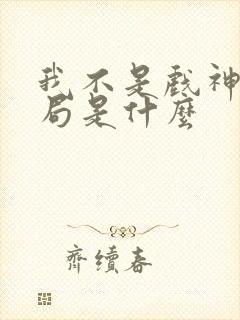 我不是戲神
局是什麼
齊續春